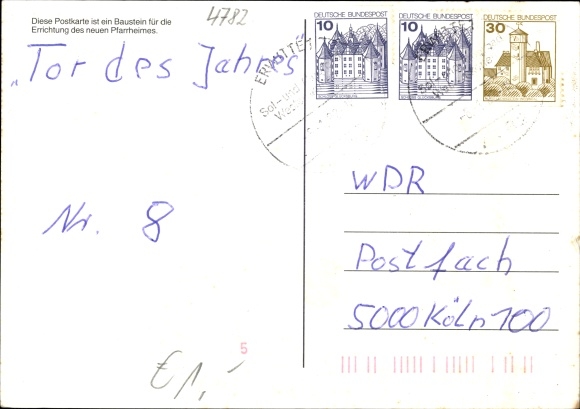 Diese Postkarte ist ein Baustein für die
Errichtung des neuen Pfarrheimes.
4782
„Tor des Jahres"
Nr. 8
€ 1,-
5
10 DEUTSCHE BUNDESPOST
10 DEUTSCHE BUNDESPOST
30 DEUTSCHE BUNDESPOST
ERWITTE
Sol- und
WDR
Postfach
5000 Köln 100